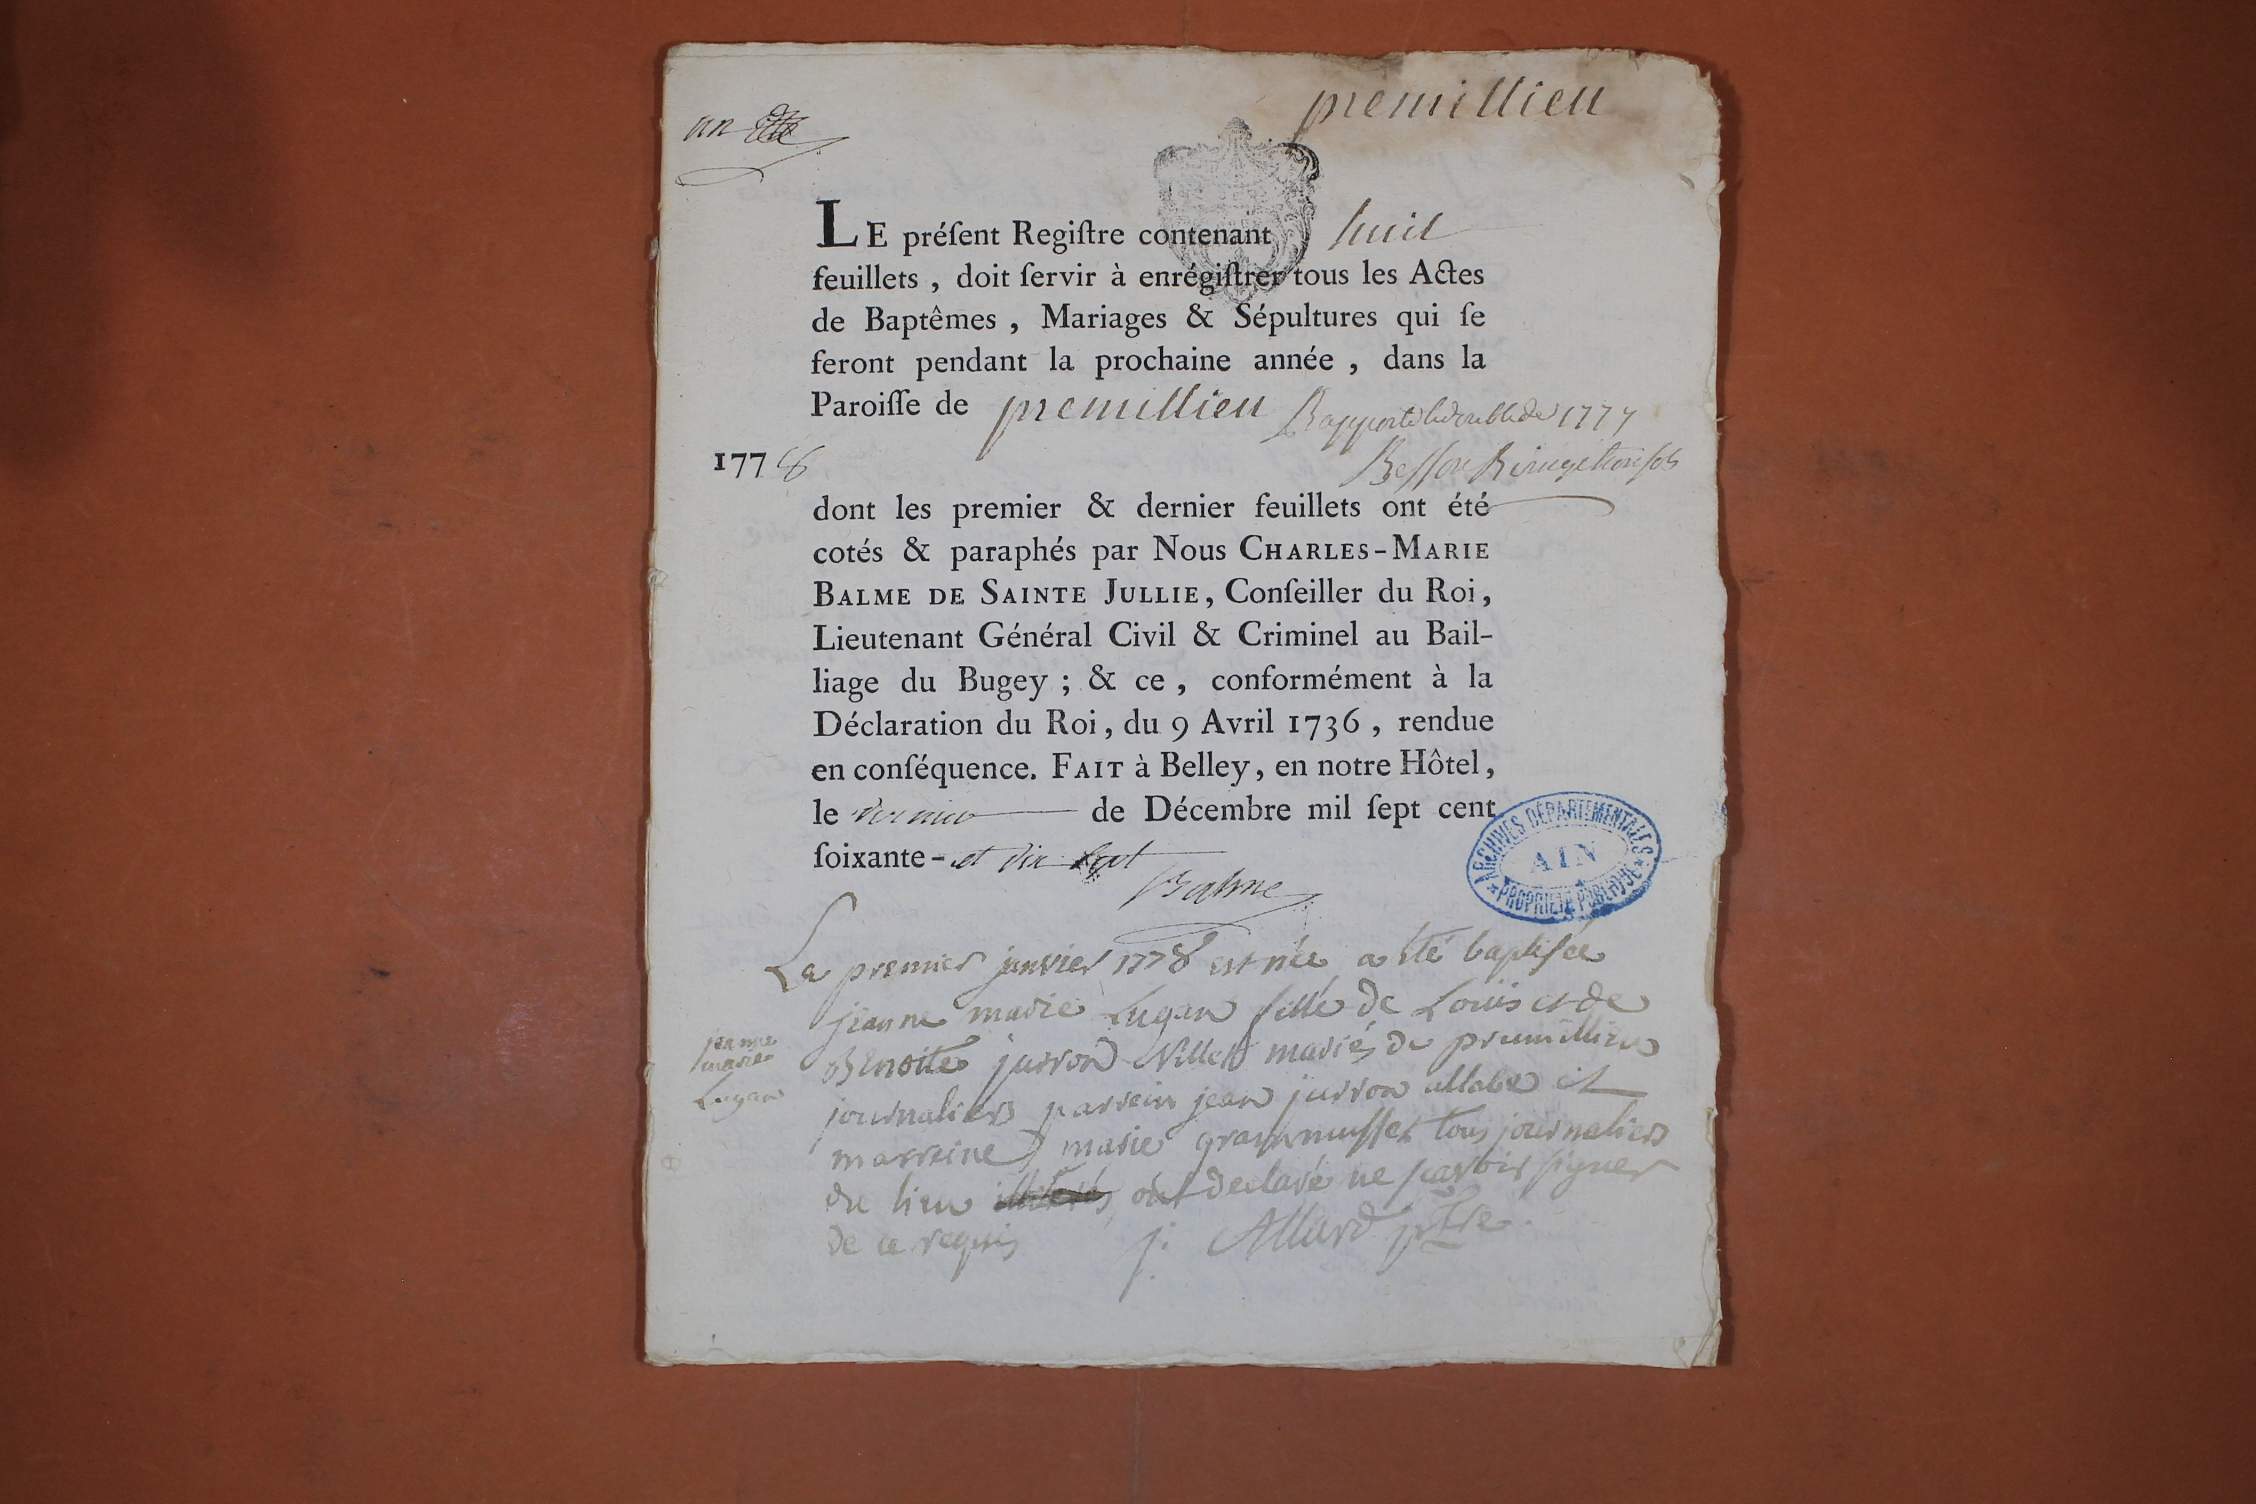 premillieu
un
LE préſent Regiſtre contenant huit
feuillets , doit ſervir à enrégiſtrer tous les Actes
de Baptêmes , Mariages & Sépultures qui ſe
feront pendant la prochaine année , dans la
Paroiſſe de premillieu Rapporté le double de 1777
1778
dont les premier & dernier feuillets ont été
cotés & paraphés par Nous CHARLES-MARIE
BALME DE SAINTE JULLIE, Conſeiller du Roi,
Lieutenant Général Civil & Criminel au Bail-
liage du Bugey ; & ce , conformément à la
Déclaration du Roi, du 9 Avril 1736 , rendue
en conſéquence. FAIT à Belley, en notre Hôtel,
le dernier de Décembre mil ſept cent
ſoixante- et dix sept
Balme
ARCHIVES DÉPARTEMENTALES
AIN
PROPRIÉTÉ PUBLIQUE
Le premier janvier 1778 est née a été baptisée
jeanne marie Lugan fille de Louis et de
jeanne
marie
Lugan
Benoite jurron mariés de premillieu
journaliers parrein jean jurron et
marreine marie tous journaliers
du lieu ont declaré ne scavoir signer
de ce requis j. Allard ptre.